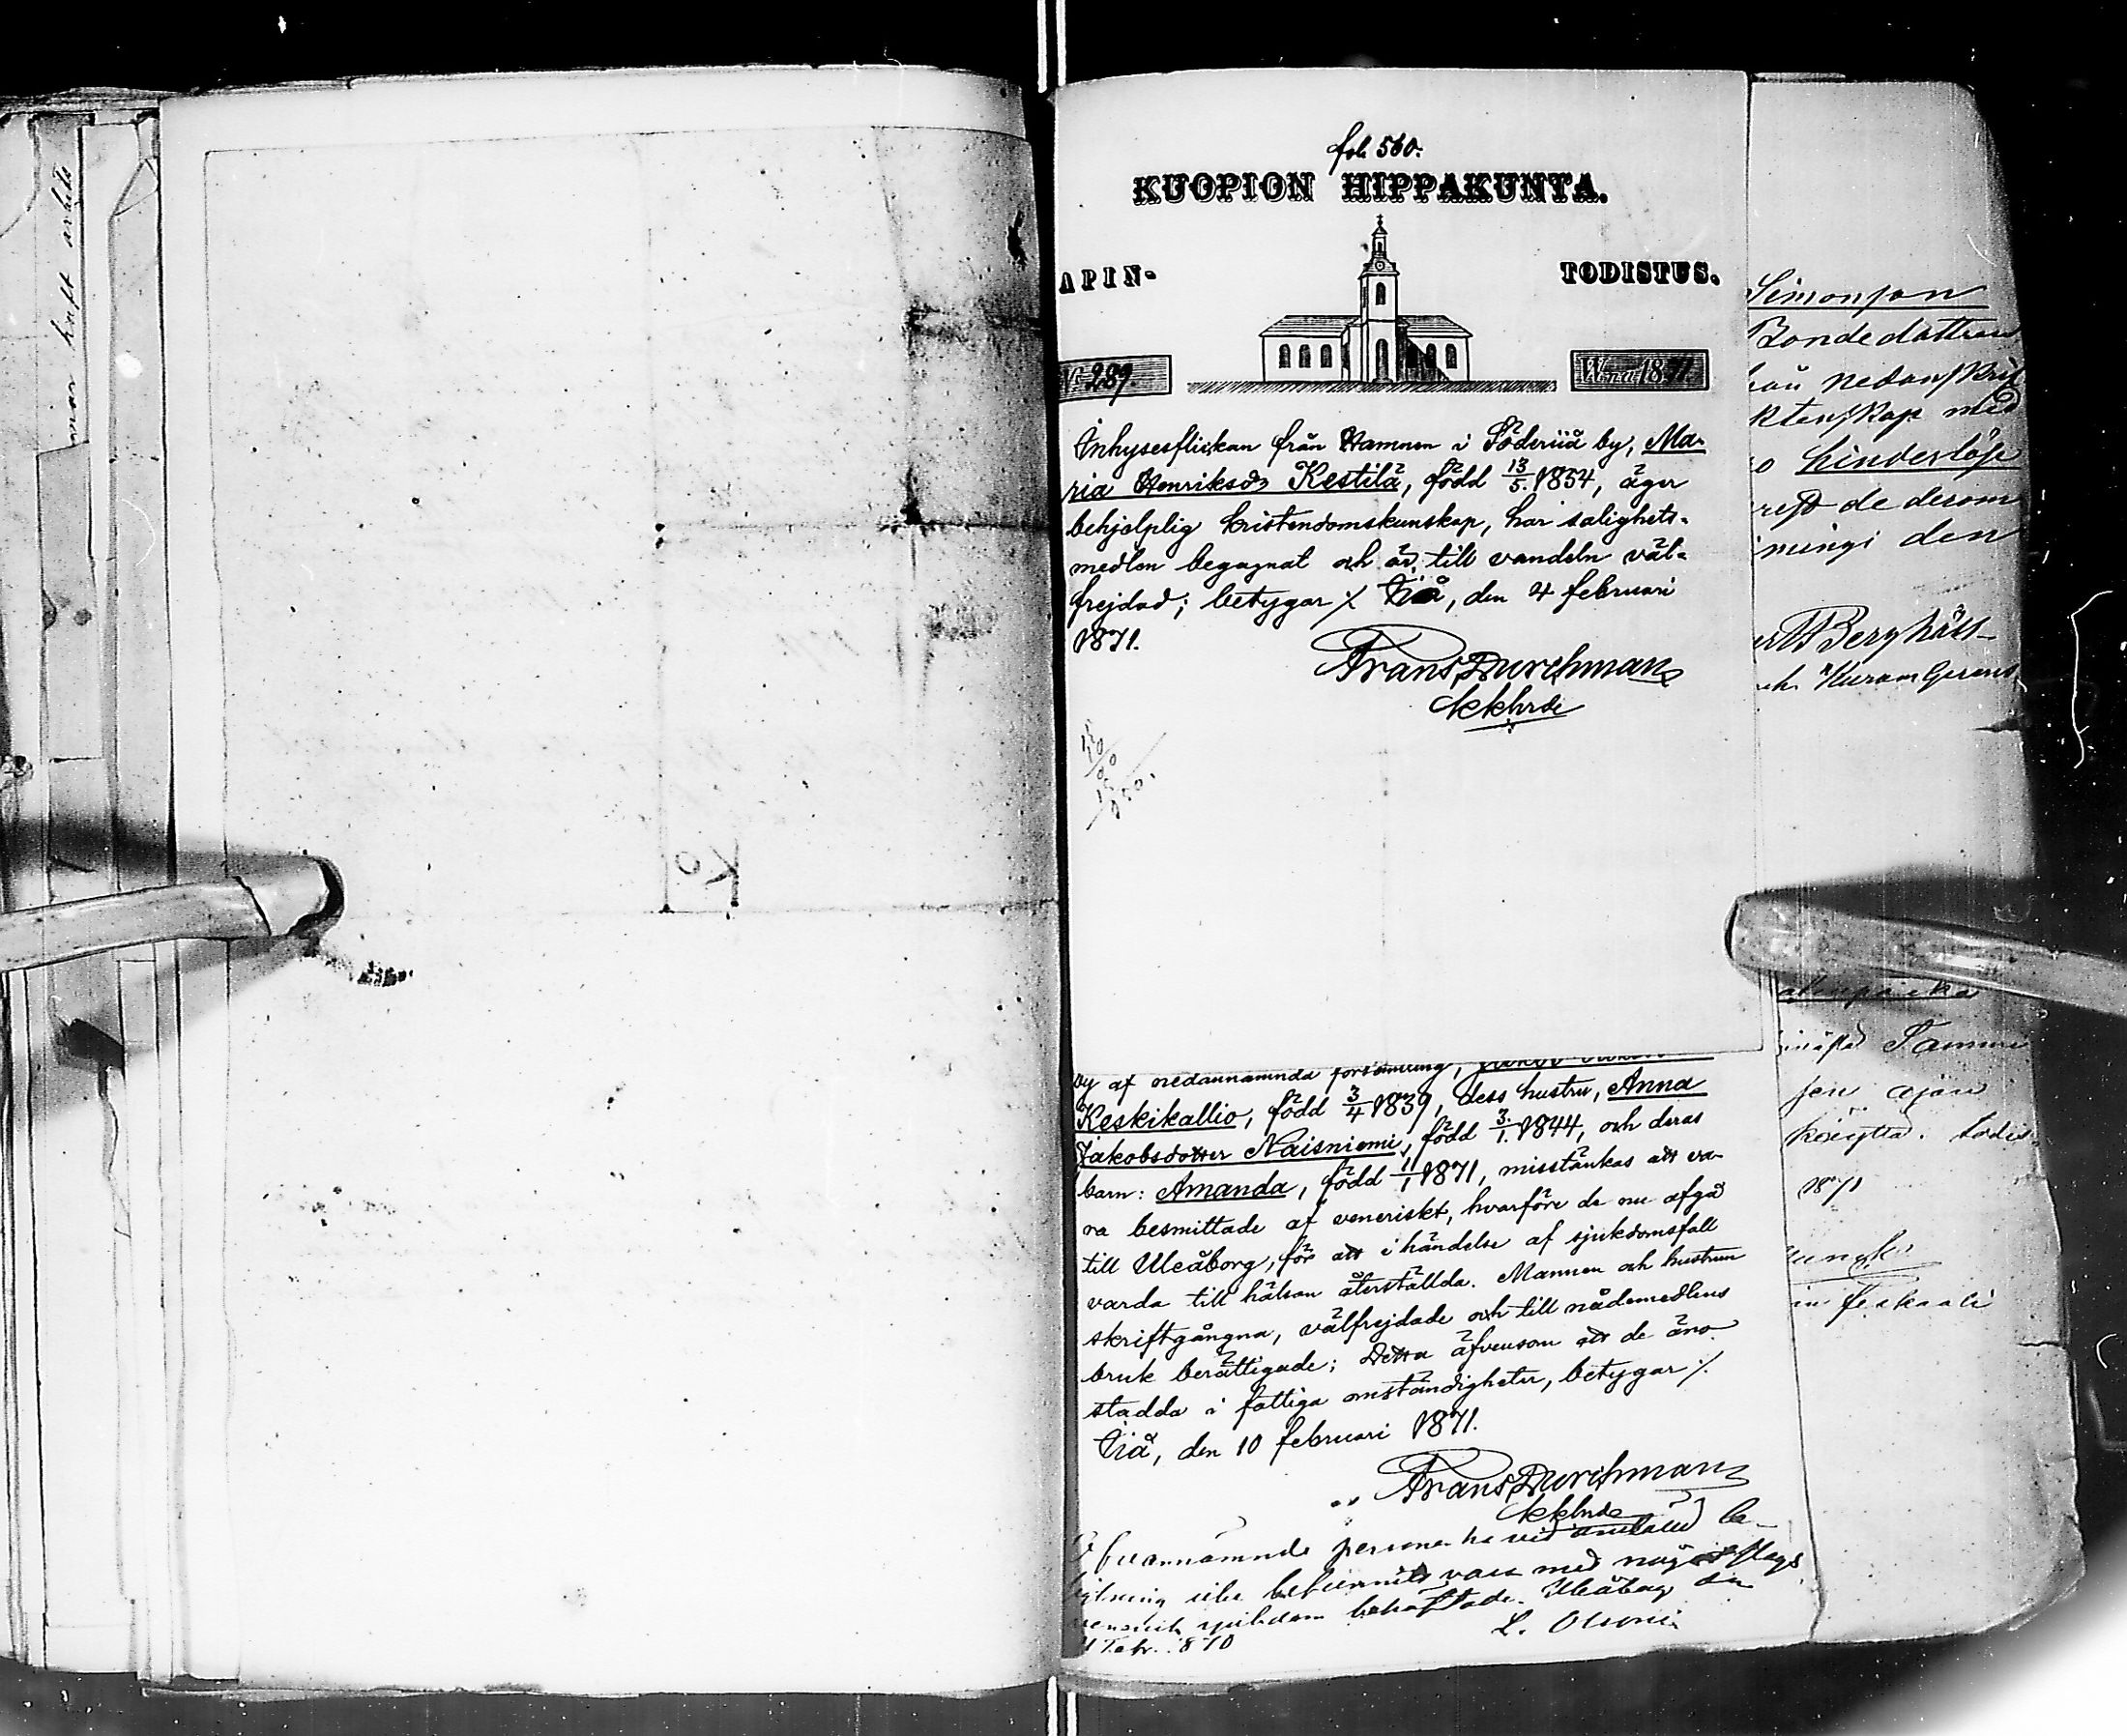 man haft arbets
Ko
fol. 560.
KUOPION HIPPAKUNTA.
APIN-
TODISTUS.
No 289.
W:na 1871.
Inhysesflickan från Hamnen i Söderiiå by, Ma-
ria Henriksdr Kestilä, född 13/5. 1854, äger
behjelplig kristendomskunskap, har salighets-
medlen begagnat och är till vandeln väl-
frejdad; betygar ⁒ Iiå, den 4 februari
1871.
Frans Durchman
kkhrde
by af nedannämnda församling,
Keskikallio, född 3/4 1839, dess hustru, Anna
Jakobsdotter Naisniemi, född 3./1. 1844, och deras
barn: Amanda, född 11/1 1871, misstänkas att va-
ra besmittade af veneriskt, hvarföre de nu afgå
till Uleåborg, för att i händelse af sjukdomsfall
varda till hälsan återställda. Mannen och hustrun
skriftgångna, välfrejdade och till nådemedlens
bruk berättigade; Detta äfvensom att de äro
stadda i fattiga omständigheter, betygar ⁒
Iiå, den 10 februari 1871.
Frans Durchman
kkhrde
personer ha vid anstäld be-
vara med något slags
behäftade. Uleåborg den
Febr. 1870
Simonson
Bondedottren
nedanskrif
ktenskap med
hinderlöse
de derom
mingi den
Berghäll
Tammi
jen ajan
todis
1871